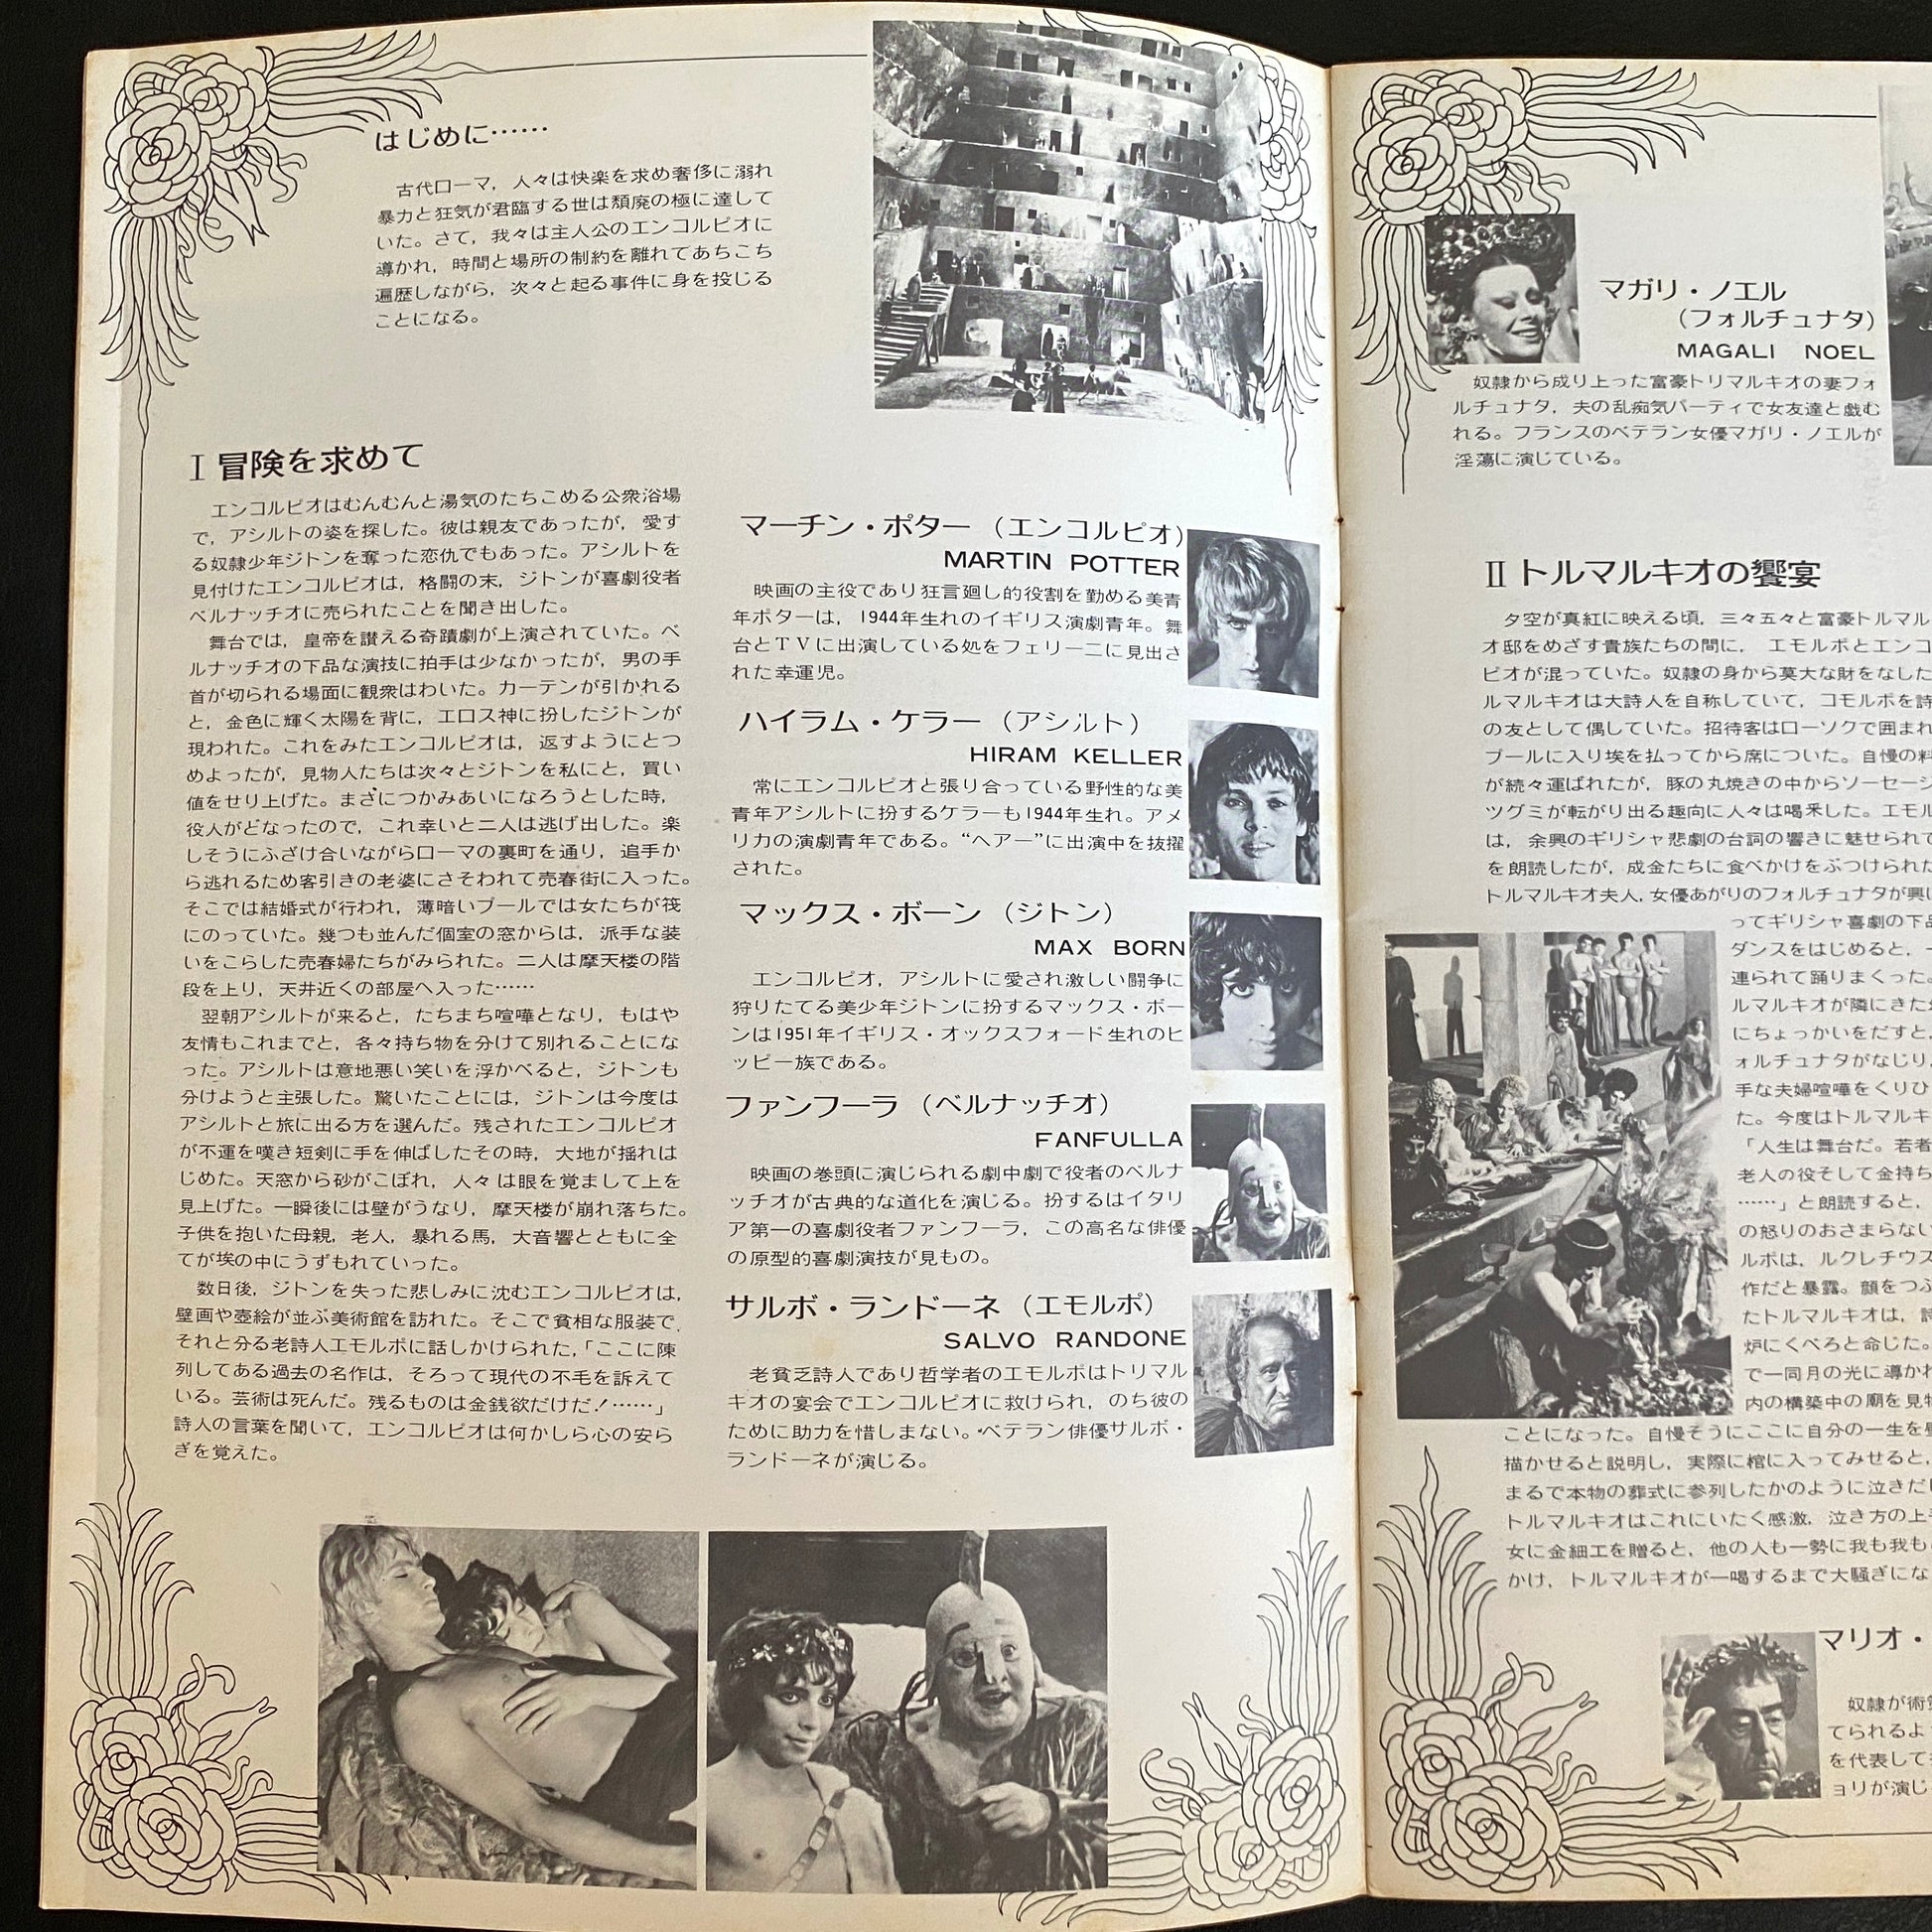 はじめに……
古代ローマ，人々は快楽を求め奢侈に溺れ
暴力と狂気が君臨する世は頽廃の極に達して
いた。さて，我々は主人公のエンコルピオに
導かれ，時間と場所の制約を離れてあちこち
遍歴しながら，次々と起る事件に身を投じる
ことになる。
I 冒険を求めて
エンコルピオはむんむんと湯気のたちこめる公衆浴場
で，アシルトの姿を探した。彼は親友であったが，愛す
る奴隷少年ジトンを奪った恋仇でもあった。アシルトを
見付けたエンコルピオは，格闘の末，ジトンが喜劇役者
ベルナッチオに売られたことを聞き出した。
舞台では，皇帝を讃える奇蹟劇が上演されていた。ベ
ルナッチオの下品な演技に拍手は少なかったが，男の手
首が切られる場面に観衆はわいた。カーテンが引かれる
と，金色に輝く太陽を背に，エロス神に扮したジトンが
現われた。これをみたエンコルピオは，返すようにとつ
めよったが，見物人たちは次々とジトンを私にと，買い
値をせり上げた。まさにつかみあいになろうとした時，
役人がどなったので，これ幸いと二人は逃げ出した。楽
しそうにふざけ合いながらローマの裏町を通り，追手か
ら逃れるため客引きの老婆にさそわれて売春街に入った。
そこでは結婚式が行われ，薄暗いプールでは女たちが筏
にのっていた。幾つも並んだ個室の窓からは，派手な装
いをこらした売春婦たちがみられた。二人は摩天楼の階
段を上り，天井近くの部屋へ入った……
翌朝アシルトが来ると，たちまち喧嘩となり，もはや
友情もこれまでと，各々持ち物を分けて別れることにな
った。アシルトは意地悪い笑いを浮かべると，ジトンも
分けようと主張した。驚いたことには，ジトンは今度は
アシルトと旅に出る方を選んだ。残されたエンコルピオ
が不運を嘆き短剣に手を伸ばしたその時，大地が揺れは
じめた。天窓から砂がこぼれ，人々は眼を覚まして上を
見上げた。一瞬後には壁がうなり，摩天楼が崩れ落ちた。
子供を抱いた母親，老人，暴れる馬，大音響とともに全
てが埃の中にうずもれていった。
数日後，ジトンを失った悲しみに沈むエンコルピオは，
壁画や壺絵が並ぶ美術館を訪れた。そこで貧相な服装で，
それと分る老詩人エモルポに話しかけられた，「ここに陳
列してある過去の名作は，そろって現代の不毛を訴えて
いる。芸術は死んだ。残るものは金銭欲だけだ！……」
詩人の言葉を聞いて，エンコルピオは何かしら心の安ら
ぎを覚えた。
マーチン・ポター（エンコルピオ）
MARTIN POTTER
映画の主役であり狂言廻し的役割を勤める美青
年ポターは，1944年生れのイギリス演劇青年。舞
台とTVに出演している処をフェリーニに見出さ
れた幸運児。
ハイラム・ケラー（アシルト）
HIRAM KELLER
常にエンコルピオと張り合っている野性的な美
青年アシルトに扮するケラーも1944年生れ。アメ
リカの演劇青年である。“ヘアー”に出演中を抜擢
された。
マックス・ボーン（ジトン）
MAX BORN
エンコルピオ，アシルトに愛され激しい闘争に
狩りたてる美少年ジトンに扮するマックス・ボー
ンは1951年イギリス・オックスフォード生れのヒ
ッピー族である。
ファンフーラ（ベルナッチオ）
FANFULLA
映画の巻頭に演じられる劇中劇で役者のベルナ
ッチオが古典的な道化を演じる。扮するはイタリ
ア第一の喜劇役者ファンフーラ，この高名な俳優
の原型的喜劇演技が見もの。
サルボ・ランドーネ（エモルポ）
SALVO RANDONE
老貧乏詩人であり哲学者のエモルポはトリマル
キオの宴会でエンコルピオに救けられ，のち彼の
ために助力を惜しまない。ベテラン俳優サルボ・
ランドーネが演じる。
マガリ・ノエル
（フォルチュナタ）
MAGALI NOEL
奴隷から成り上った富豪トリマルキオの妻フォ
ルチュナタ，夫の乱痴気パーティで女友達と戯む
れる。フランスのベテラン女優マガリ・ノエルが
淫蕩に演じている。
II トルマルキオの饗宴
夕空が真紅に映える頃，三々五々と富豪トルマル
オ邸をめざす貴族たちの間に，エモルポとエンコ
ピオが混っていた。奴隷の身から莫大な財をなした
ルマルキオは大詩人を自称していて，コモルポを詩
の友として偶していた。招待客はローソクで囲まれ
プールに入り埃を払ってから席についた。自慢の料
が続々運ばれたが，豚の丸焼きの中からソーセージ
ツグミが転がり出る趣向に人々は喝釆した。エモル
は，余興のギリシャ悲劇の台詞の響きに魅せられて
を朗読したが，成金たちに食べかけをぶつけられた
トルマルキオ夫人，女優あがりのフォルチュナタが興に
ってギリシャ喜劇の下品
ダンスをはじめると，
連られて踊りまくった。
ルマルキオが隣にきた
にちょっかいをだすと，
ォルチュナタがなじり，
手な夫婦喧嘩をくりひ
た。今度はトルマルキ
「人生は舞台だ。若者
老人の役そして金持ち
……」と朗読すると，
の怒りのおさまらない
ルポは，ルクレチウス
作だと暴露。顔をつぶ
たトルマルキオは，詩
炉にくべろと命じた。
で一同月の光に導かれ
内の構築中の廟を見物
ことになった。自慢そうにここに自分の一生を壁
描かせると説明し，実際に棺に入ってみせると，
まるで本物の葬式に参列したかのように泣きだし
トルマルキオはこれにいたく感激，泣き方の上手
女に金細工を贈ると，他の人も一勢に我も我も
かけ，トルマルキオが一喝するまで大騒ぎにな
マリオ・
奴隷が術
てられるよ
を代表して
ョリが演じ